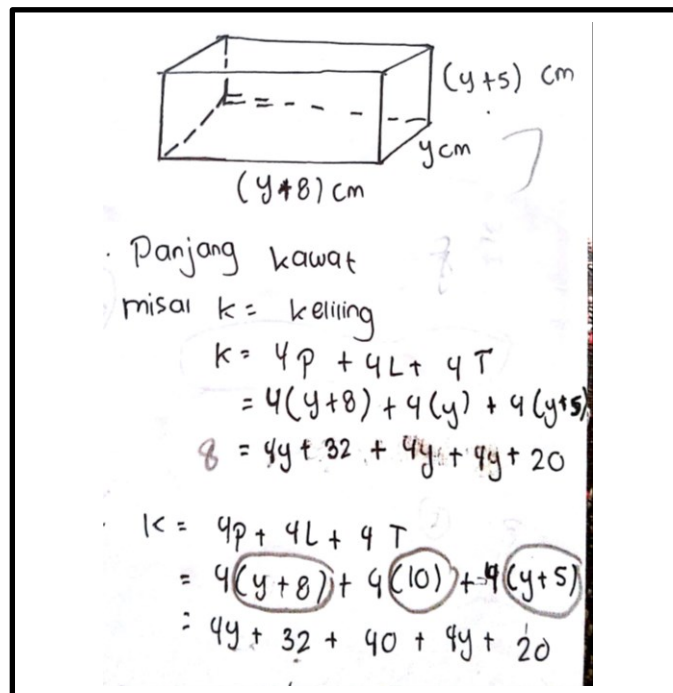 (y+5) cm
y cm
7
(y+8) cm
. Panjang kawat
misal k = keliling
k = 4P + 4L + 4T
= 4(y+8) + 4(y) + 4(y+5)
8 = 4y + 32 + 4y + 4y + 20
. K = 4P + 4L + 4T
= 4(y+8) + 4(10) + 4(y+5)
= 4y + 32 + 40 + 4y + 20